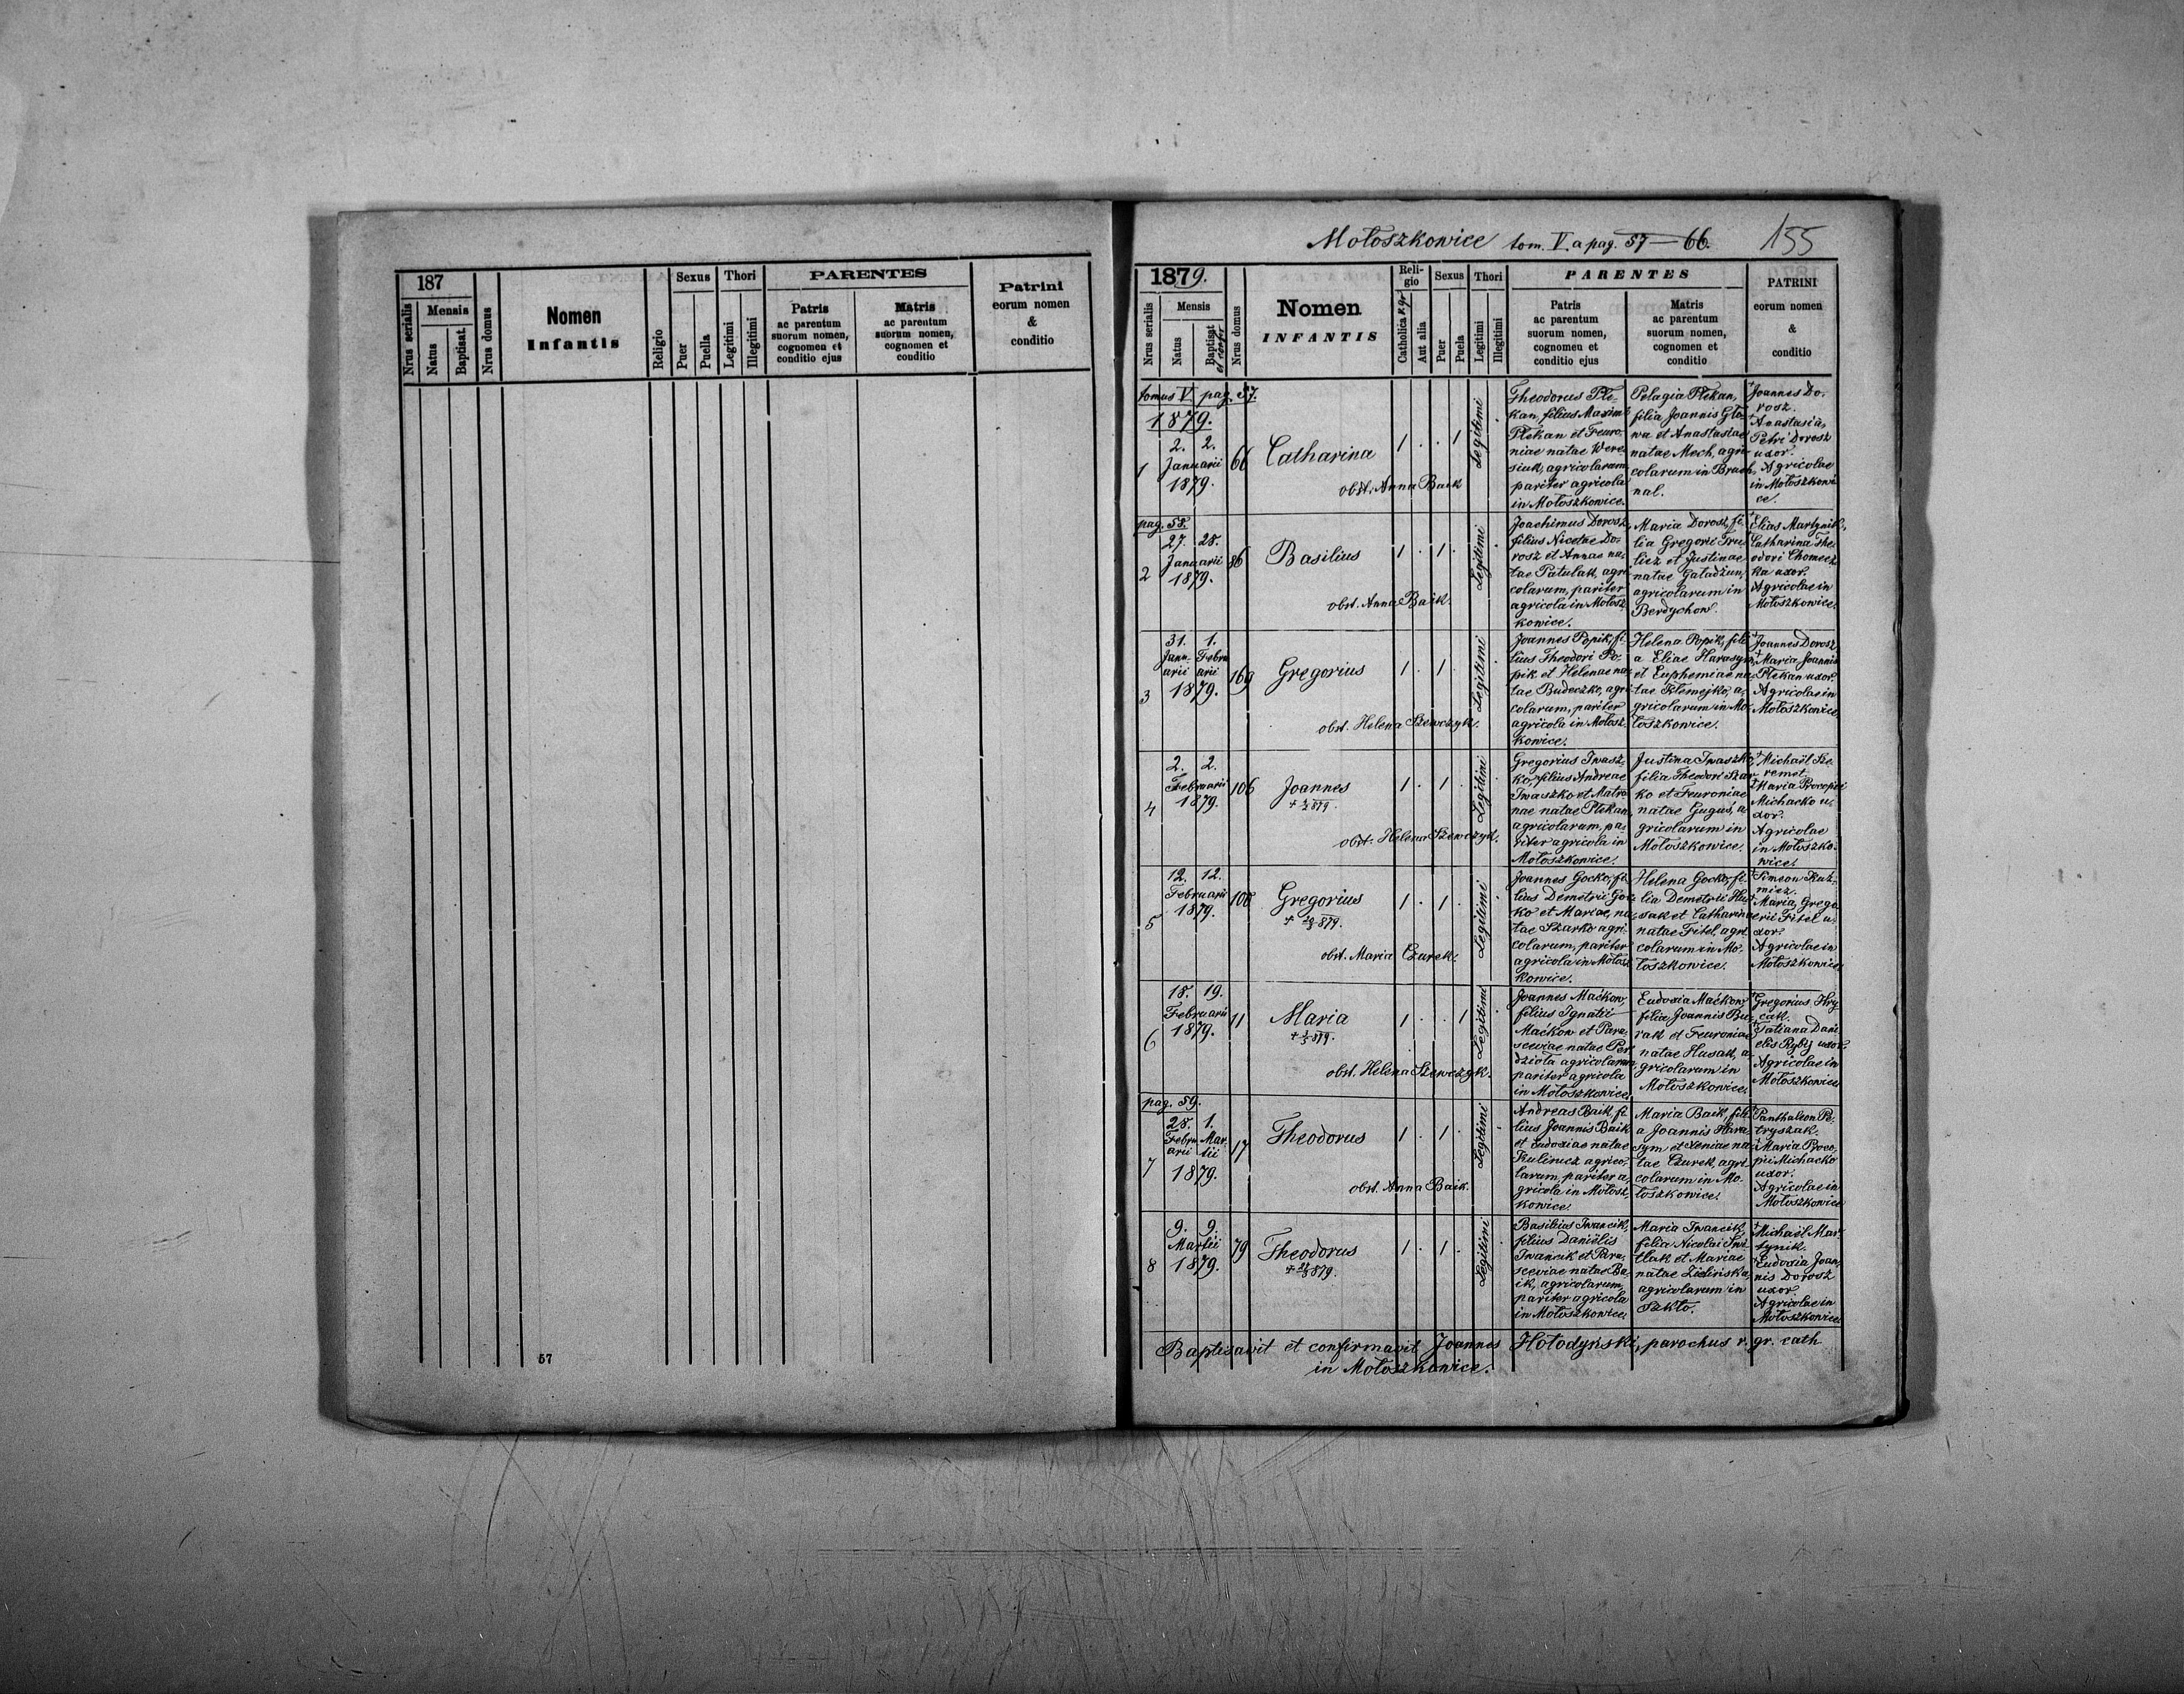 187
Nrus serialis
Mensis
Natus
Baptisat
Nrus domus
Nomen
Infantis
Religio
Sexus
Puer
Puella
Thori
Legitimi
Illegitimi
PARENTES
Patris
ac parentum
suorum nomen,
cognomen et
conditio ejus
Matris
ac parentum
suorum nomen,
cognomen et
conditio
Patrini
eorum nomen
&
conditio
57
Mołoszkowice tom. V. a pag. 57 — 66.
155
1879.
Nrus serialis
Mensis
Natus
Baptisat
et confir
Nrus domus
Nomen
INFANTIS
Religio
Catholica r. gr
Aut alia
Sexus
Puer
Puela
Thori
Legitimi
Illegitimi
PARENTES
Patris
ac parentum
suorum nomen,
cognomen et
conditio ejus
Matris
ac parentum
suorum nomen,
cognomen et
conditio
PATRINI
eorum nomen
&
conditio
tomus V. pag. 57.
1879.
1
2. 2.
Januarii
1879.
66
Catharina
obst. Anna Baik
1 . . 1
Legitimi
Theodorus Ple-
kan, filius Maximi
Plekan et Feuro-
niae natae Were-
siuk, agricolarum
pariter agricola
in Mołoszkowice.
Pelagia Plekan,
filia Joannis Gło-
wa et Anastasiae
natae Mech, agri-
colarum in Bruch-
nal.
Joannes Do-
rosz.
Anastasia,
Petri Dorosz
uxor.
Agricolae
in Mołoszkowi-
ce.
pag. 58.
2
27. 28.
Januarii
1879.
86
Basilius
obst. Anna Baik.
1 . 1 .
Legitimi
Joachimus Dorosz,
filius Nicetae Do-
rosz et Annae na-
tae Patulak, agri-
colarum, pariter
agricola in Mołosz-
kowice.
Maria Dorosz, fi-
lia Gregorii
et Justinae
natae Gaładzun,
agricolarum in
Berdychow.
Elias Martynik,
Catharina The-
odori Chomecz-
ka uxor.
Agricolae in
Mołoszkowice.
3
31. 1.
Janu- Febru
arii arii
1879.
169
Gregorius
obst. Helena Szewczyk.
1 . 1 .
Legitimi
Joannes Popik, fi-
lius Theodori Po-
pik et Helenae na-
tae Budeczko, agri-
colarum, pariter
agricola in Mołosz-
kowice.
Helena Popik, fili-
a Eliae Harasym,
et Euphemiae na-
tae Klemejko, a-
gricolarum in Mo-
łoszkowice.
Joannes Dorosz
Maria Joannis
Plekan uxor.
Agricolae in
Mołoszkowice.
4
2. 2.
Februarii
1879.
106
Joannes
obst. Helena Szewczyk.
1 . 1 .
Legitimi
Gregorius Iwasz-
ko, filius Andreae
Iwaszko et Matro-
nae natae Plekan,
agricolarum, pa-
riter agricola in
Mołoszkowice.
Justina Iwaszko,
filia Theodori Szar-
ko et Feuroniae
natae Guguś, a-
gricolarum in
Mołoszkowice.
Michaël Sze-
remet.
Maria Procopii
Michaćko u-
xor.
Agricolae
in Mołoszko-
wice.
5
12. 12.
Februarii
1879.
108
Gregorius
obst. Maria Czurek.
1 . 1 .
Legitimi
Joannes Gocko, fi-
lius Demetrii Goc-
ko et Mariae, na-
tae Szarko agri-
colarum, pariter
agricola in Mołosz-
kowice.
Helena Gocko, fi-
lia Demetrii Hu-
sak et Catharinae
natae Fitel, agri-
colarum in Mo-
łoszkowice.
Simeon Kuź-
micz.
Maria, Grego-
rii Fitel u-
xor.
Agricolae in
Mołoszkowice.
6
18. 19.
Februarii
1879.
11
Maria
obst. Helena Szewczyk.
1 . . 1
Legitimi
Joannes Maćkow,
filius Ignatii
Maćkow et Para-
sceviae natae Per-
dzioła agricolarum,
pariter agricola
in Mołoszkowice.
Eudoxia Maćkow,
filia Joannis Bu-
rak et Feuroniae
natae Husak, a-
gricolarum in
Mołoszkowice.
Gregorius Hry-
cak.
Tatiana Dani-
elis Ryby uxor.
Agricolae in
Mołoszkowice.
pag. 59.
7
28. 1.
Febru- Mar-
arii tii
1879.
17
Theodorus
obst. Anna Baik.
1 . 1 .
Legitimi
Andreas Baik, fi-
lius Joannis Baik
et Eudoxiae natae
Kulinicz agrico-
larum, pariter a-
gricola in Mołosz-
kowice.
Maria Baik, fili-
a Joannis Hara-
sym et Xeniae na-
tae Czurek, agri-
colarum in Mo-
łoszkowice.
Panthaleon Pe-
tryszak.
Maria Proco-
pii Michaćko
uxor.
Agricolae in
Mołoszkowice
8
9. 9.
Martii
1879.
79
Theodorus
1 . 1 .
Legitimi
Basilius Iwancik,
filius Daniëlis
Iwancik et Para-
sceviae natae Ba-
ik, agricolarum,
pariter agricola
in Mołoszkowice.
Maria Iwancik,
filia Nicolai
et Mariae
natae Zielińska,
agricolarum in
Szkło.
Michaël Mar-
tynik.
Eudoxia Joan-
nis Dorosz
uxor.
Agricolae in
Mołoszkowice.
Baptisavit et confirmavit Joannes Hołodyński, parochus r. gr. cath
in Mołoszkowice.